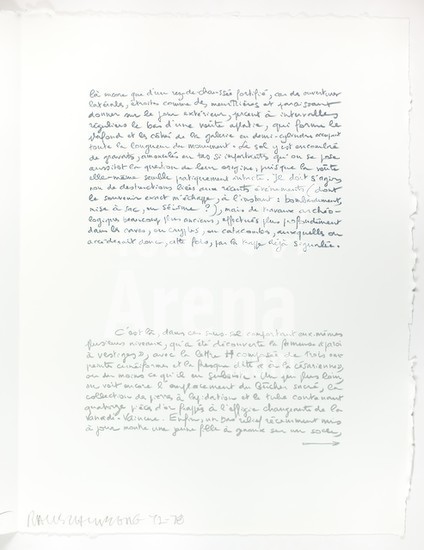 là même que d'un rez-de-chaussée fortifié, car des ouvertures
latérales, étroites comme des meurtrières et paraissant
donner sur le jour extérieur, percent à intervalles
réguliers le bas d'une voûte aplatie, qui forme le
plafond et les côtés de la galerie en demi-cylindre occupant
toute la longueur du monument. Le sol y est encombré
de gravats, amoncelés en tas si importants qu'on se pose
aussitôt la question de leur origine, puisque la voûte
elle-même semble pratiquement intacte. Il doit s'agir,
non de destructions liées aux récents événements (dont
le souvenir exact m'échappe, à l'instant : bombardement,
mise à sac, ou séisme ?), mais de travaux archéo-
logiques beaucoup plus anciens, effectués plus profondément
dans les caves, ou cryptes, ou catacombes, auxquelles on
accéderait donc, cette fois, par la trappe déjà signalée.
C'est là, dans ces sous-sols comportant eux-mêmes
plusieurs niveaux, qu'a été découverte la fameuse
vestiges, avec la lettre H composée de trois
pointe cunéiformes et la fresque dite
ou du moins ce qu'il en subsiste. Un peu plus loin,
on voit encore l'emplacement du bûcher sacré, la
collection de pierres à lapidation et le tube contenant
quatorze pièces d'or frappées à l'effigie changeante de la
Vanadé-Vaincue. Enfin, un bas-relief récemment mis
à jour montre une jeune fille à genoux sur un
RAUSCHENBERG 72-78
Arena